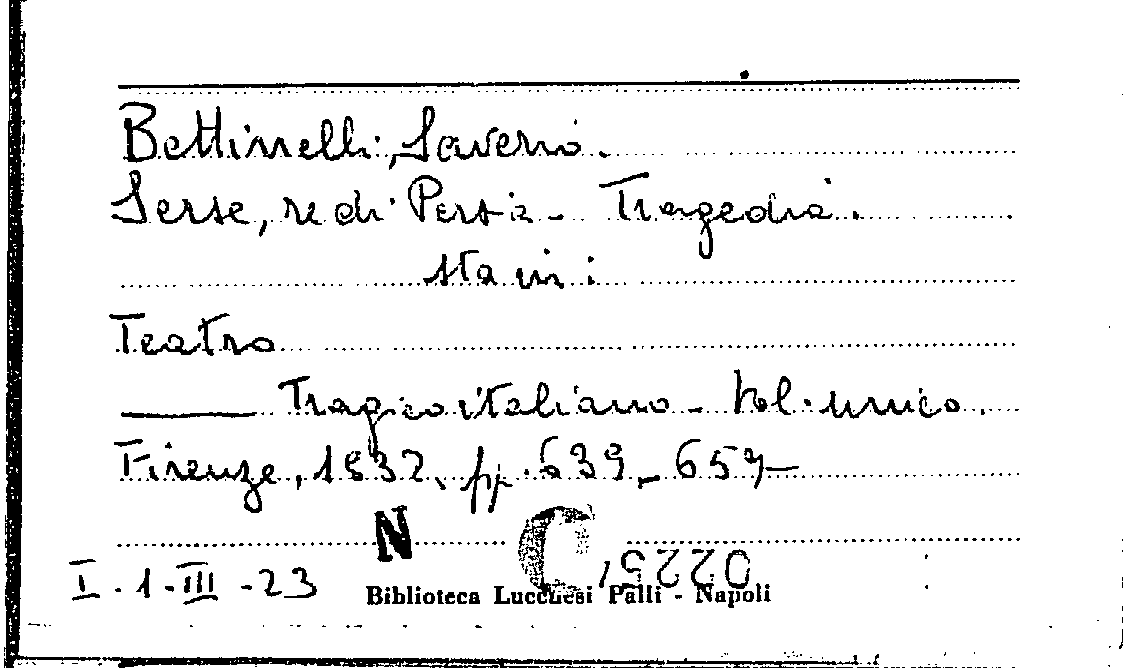 Bettinelli, Saverio.
Serse, re di Persia - Tragedia.
sta in:
Teatro
Tragico italiano - Vol. unico.
Firenze, 1832, pp. 639-659
N C 02251
I-1-III-23
Biblioteca Lucchesi Palli - Napoli